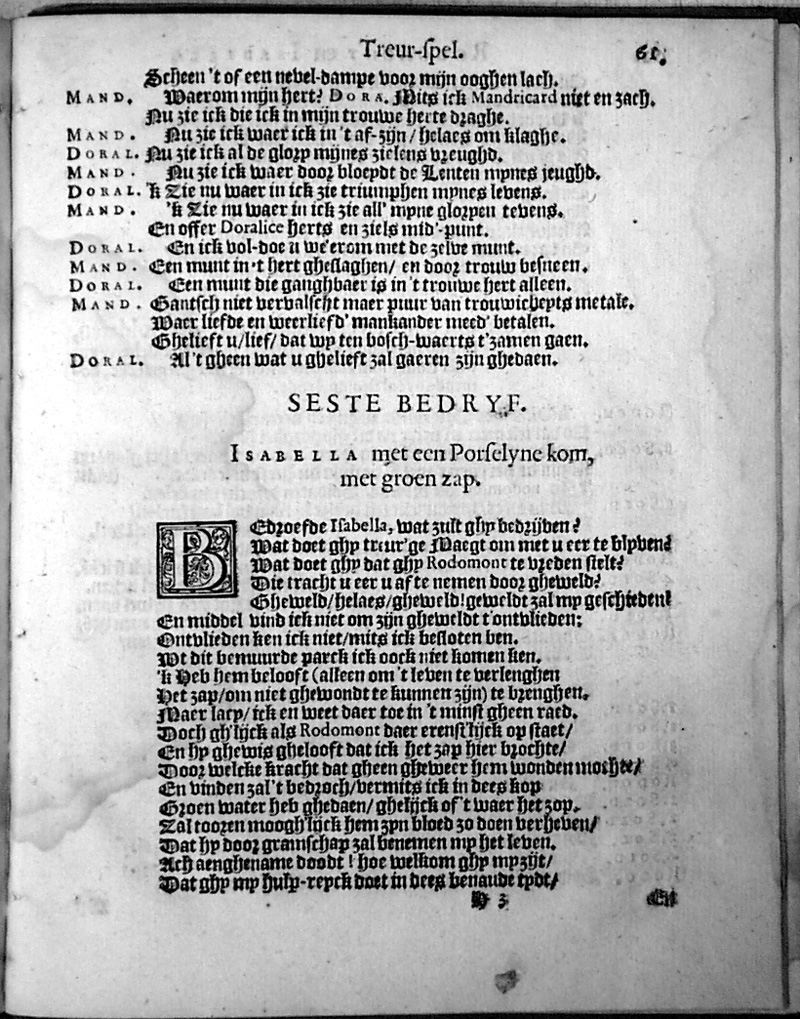 Treur-spel. 61.
Scheen 't of een nevel-dampe voor mijn ooghen lach.
MAND. Waerom mijn hert? DORA. Mits ick Mandricard niet en zach.
Nu zie ick die ick in mijn trouwe herte draghe.
MAND. Nu zie ick waer ick in 't af-zijn / helaes om klaghe.
DORAL. Nu zie ick al de glory mynes zielens vreughd.
MAND. Nu zie ick waer door bloeydt de Lenten mynes jeughd.
DORAL. 'k Zie nu waer in ick zie triumphen mynes levens.
MAND. 'k Zie nu waer in ick zie all' myne gloryen tevens.
En offer Doralice herts en ziels mid'-punt.
DORAL. En ick vol-doe u we'erom met de zelve munt.
MAND. Een munt in 't hert gheslaghen / en door trouw besneen.
DORAL. Een munt die ganghbaer is in 't trouwe hert alleen.
MAND. Gantsch niet vervalscht maer puur van trouwicheyts metale.
Waer liefde en weerliefd' mankander meed' betalen.
Ghelieft u / lief / dat wy ten bosch-waerts t'zamen gaen.
DORAL. Al 't gheen wat u ghelieft zal gaeren zijn ghedaen.
SESTE BEDRYF.
ISABELLA met een Porselyne kom,
met groen zap.
BEdroefde Isabella, wat zult ghy bedrijven?
Wat doet ghy treur'ge Maegt om met u eer te blyven?
Wat doet ghy dat ghy Rodomont te vreden stelt?
Die tracht u eer u af te nemen door gheweld?
Gheweld / helaes / gheweld! geweldt zal my geschieden!
En middel vind ick niet om zijn gheweldt t'ontvlieden;
Ontvlieden ken ick niet / mits ick besloten ben.
Wt dit bemuurde parck ick oock niet komen ken.
'k Heb hem belooft (alleen om 't leven te verlenghen
Het zap / om niet ghewondt te kunnen zijn) te brenghen.
Maer lacy / ick en weet daer toe in 't minst gheen raed.
Doch gh'lijck als Rodomont daer erenst'lijck op staet /
En hy ghewis ghelooft dat ick het zap hier brochte /
Door welcke kracht dat gheen gheweer hem wonden mochte /
En vinden zal 't bedroch / vermits ick in dees kop
Groen water heb ghedaen / ghelijck of 't waer het zop.
Zal tooren moogh'lijck hem zyn bloed zo doen verheven /
Dat hy door gramschap zal benemen my het leven.
Ach aenghename doodt! hoe welkom ghy my zijt /
Dat ghy my hulp-reyck doet in dees benaude tydt /
H 3 En